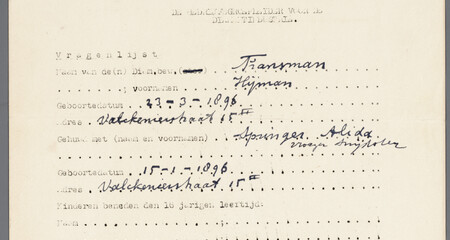 DE
VOOR DE
Vragenlijst
Naam van de(n) Diam.bew. Fransman
; voornamen Hijman
Geboortedatum 23-3-1896
Adres Valckenierstraat 15 II
Gehuwd met (naam en voornamen) Springer Alida
vroeger
Geboortedatum 15-1-1896
Adres Valckenierstraat 15 II
Kinderen beneden den 16 jarigen leeftijd:
Naam ;